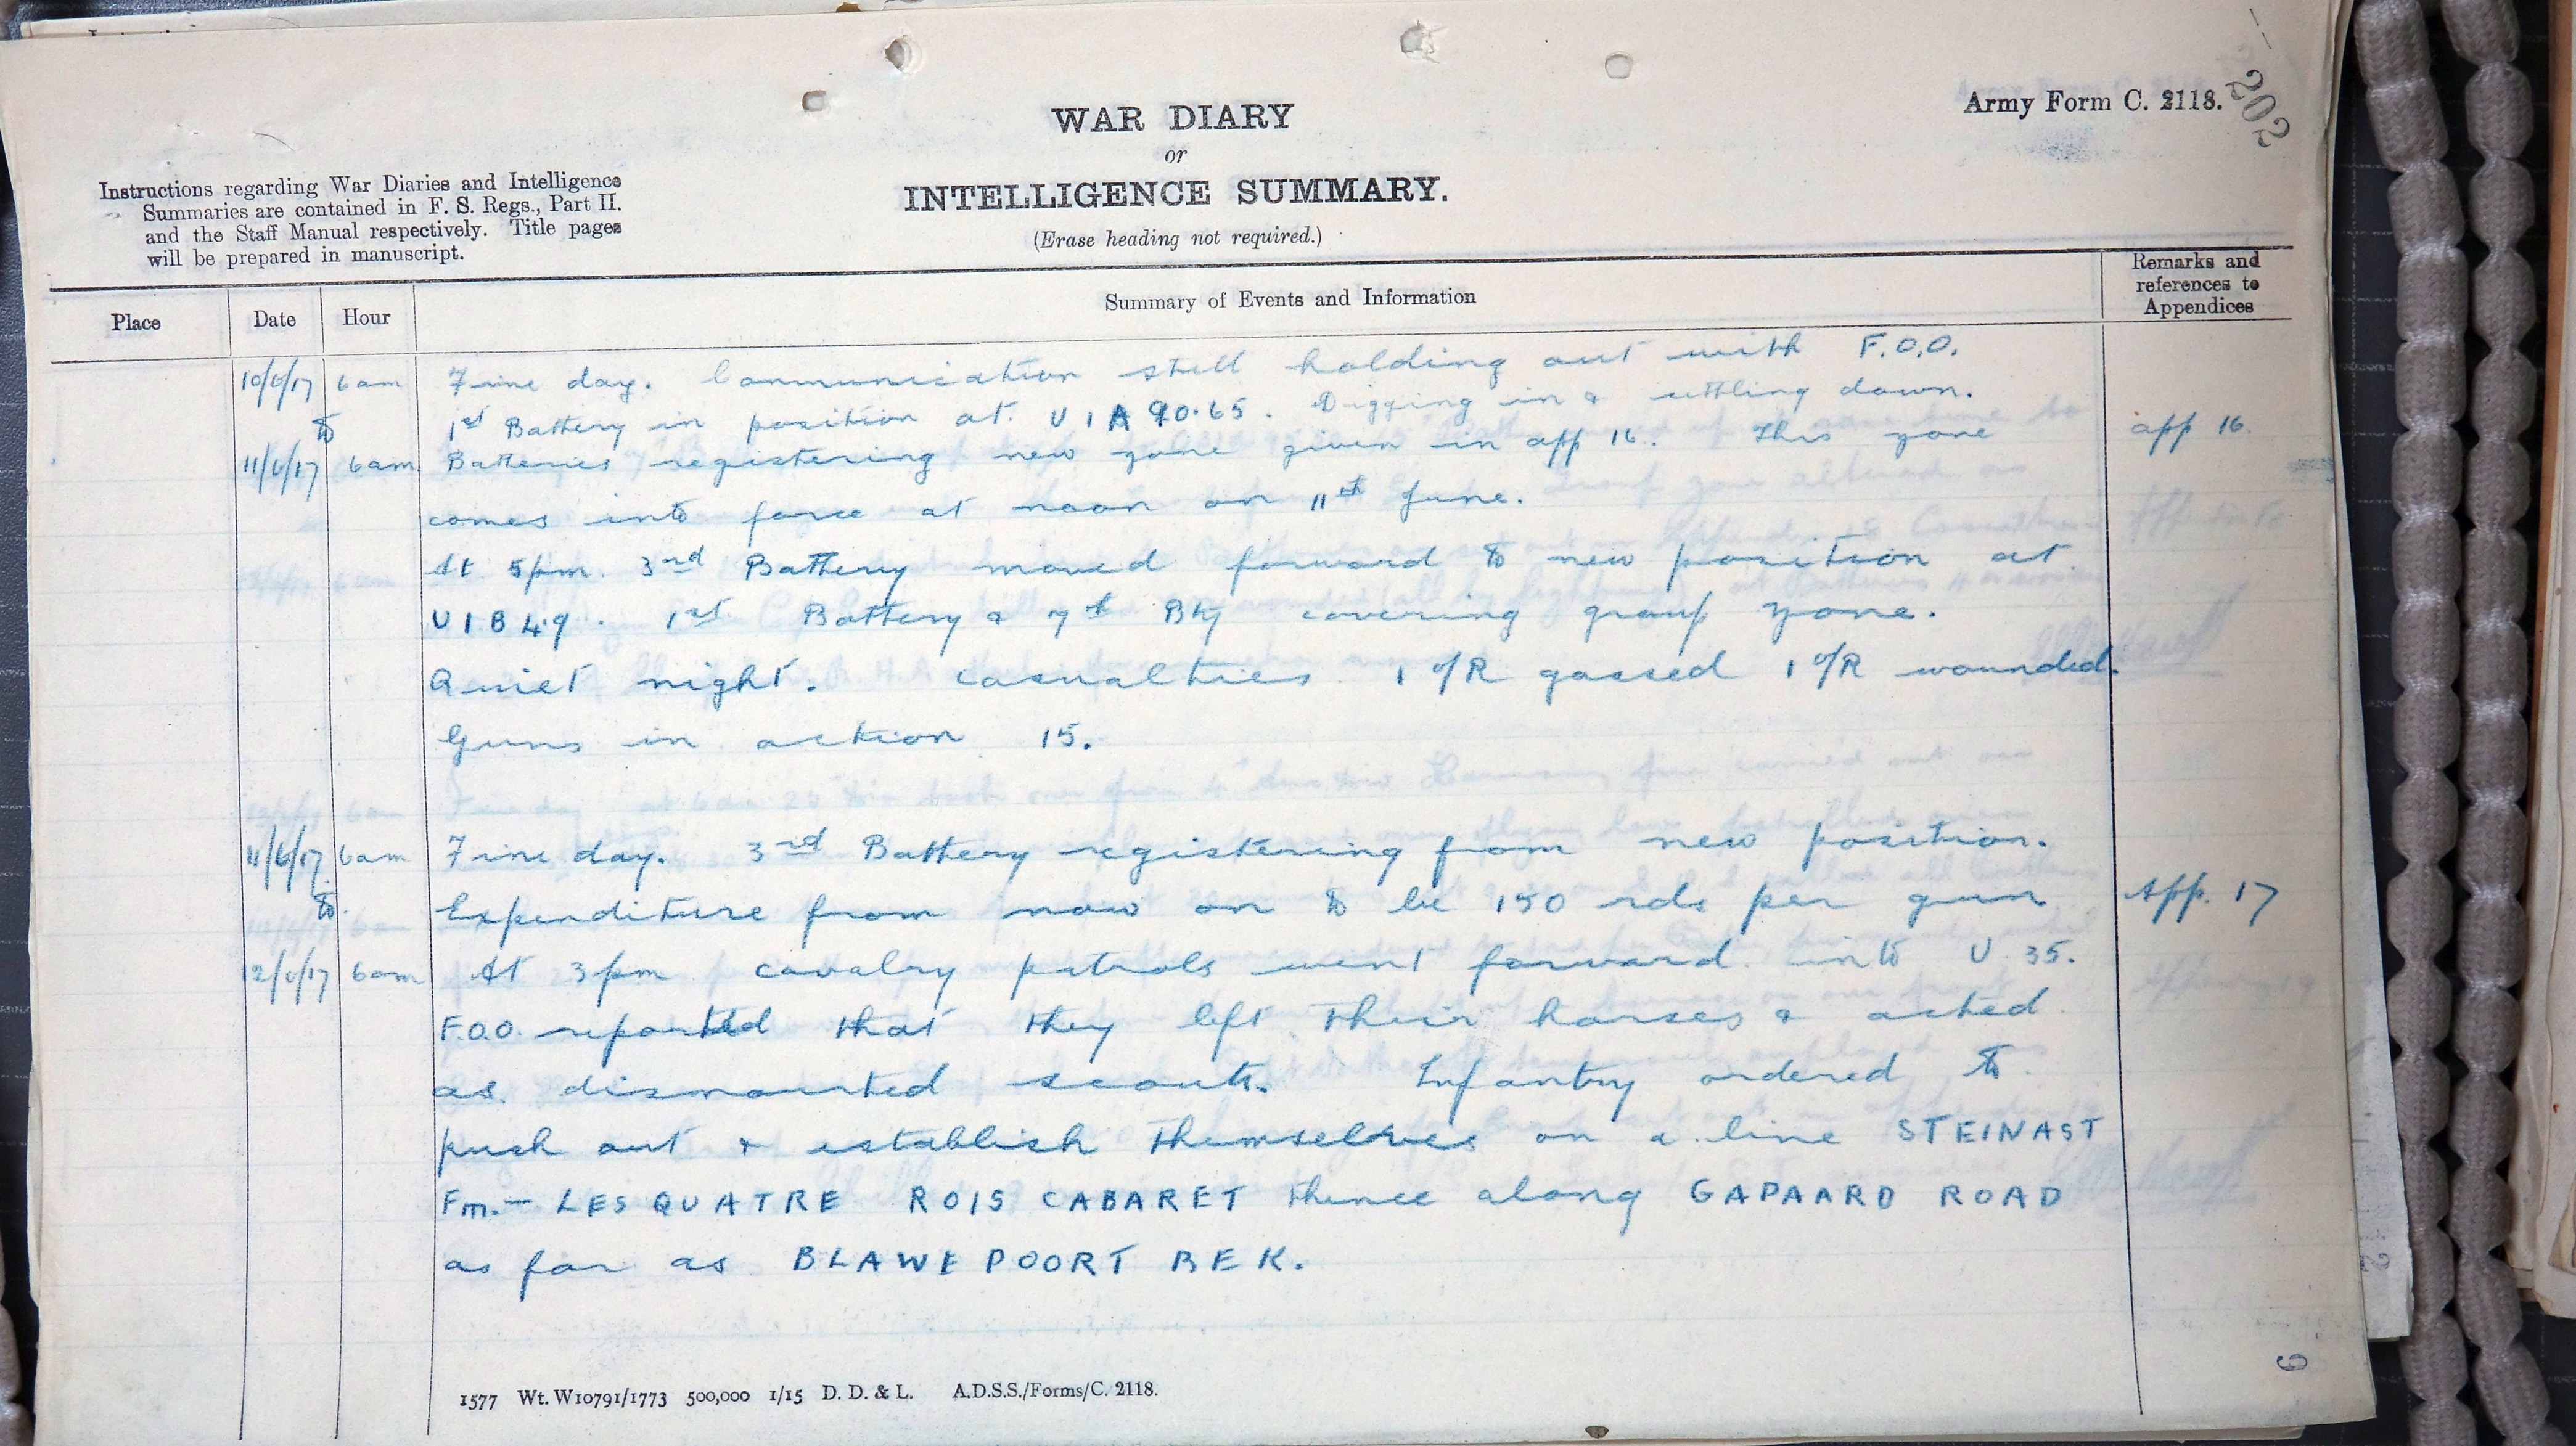 Army Form C. 2118.
202
WAR DIARY
or
INTELLIGENCE SUMMARY.
(Erase heading not required.)
Instructions regarding War Diaries and Intelligence
Summaries are contained in F. S. Regs., Part II.
and the Staff Manual respectively. Title pages
will be prepared in manuscript.
Place Date Hour Summary of Events and Information Remarks and references to Appendices
10/6/17 6am Fine day. Communication still holding out with F.O.O.
to 1st Battery in position at U 1 A 90.65. Digging in & settling down.
11/6/17 6am Batteries registering new zone given in app 16. This zone app 16.
comes into force at noon on 11th June.
At 5pm. 3rd Battery moved forward to new position at
U 1 B 4.9. 1st Battery & 7th Bty covering group zone.
Quiet night. Casualties 1 O/R gassed 1 O/R wounded.
Guns in action 15.
11/6/17 6am Fine day. 3rd Battery registering from new position.
to Expenditure from now on to be 150 rds per gun App. 17
12/6/17 6am At 3pm cavalry patrols went forward into U. 35.
F.O.O. reported that they left their horses & acted
as dismounted scouts. Infantry ordered to
push out & establish themselves on a line STEINAST
Fm. - LES QUATRE ROIS CABARET thence along GAPAARD ROAD
as far as BLAWEPOORT BEK.
1577 Wt. W10791/1773 500,000 1/15 D. D. & L. A.D.S.S./Forms/C. 2118.